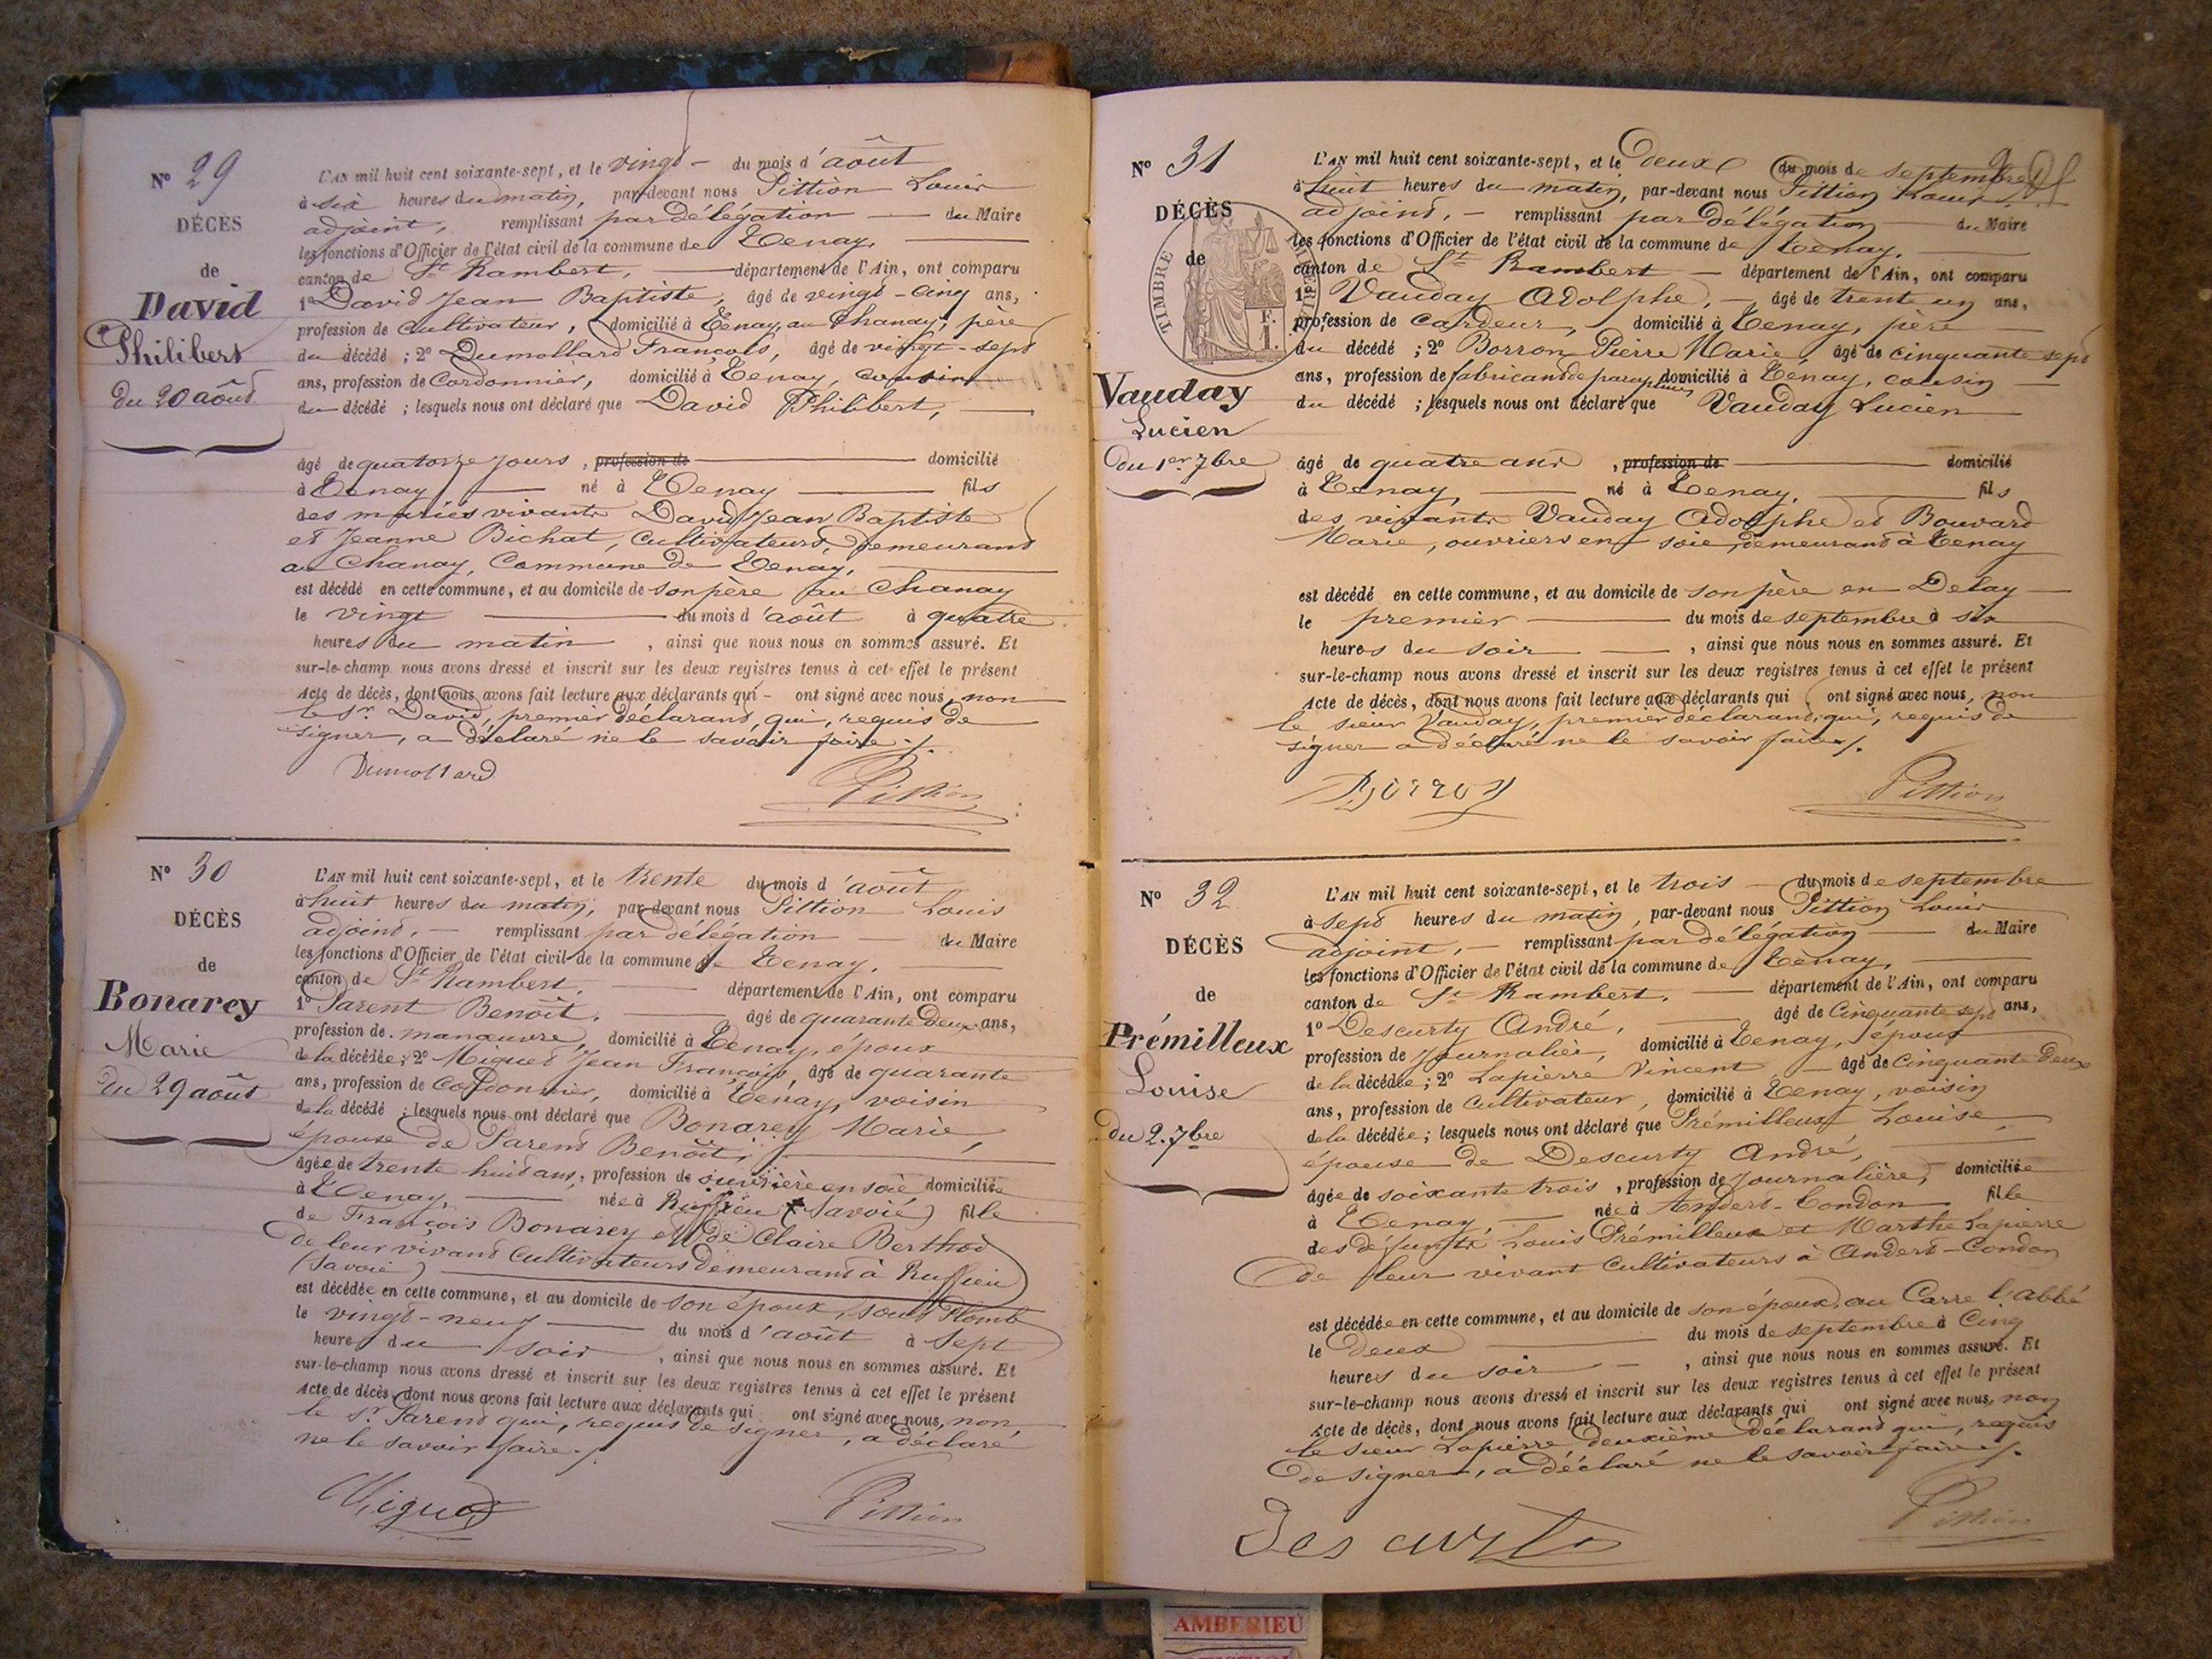 N° 29
DÉCÈS
de
David
Philibert
du 20 août
L'AN mil huit cent soixante-sept, et le vingt - du mois d'août
à six heures du matin, par-devant nous Pittion Louis
adjoint, remplissant par délégation — du Maire
les fonctions d'Officier de l'état civil de la commune de Tenay,
canton de St Rambert, — département de l'Ain, ont comparu
1° David Jean Baptiste, âgé de vingt-cinq ans,
profession de cultivateur, domicilié à Tenay, au Chanay, père
du décédé ; 2° Dumollard François, âgé de vingt-sept
ans, profession de Cordonnier, domicilié à Tenay, cousin
du décédé ; lesquels nous ont déclaré que David Philibert,
âgé de quatorze jours, profession de — domicilié
à Tenay, — né à Tenay — fils
des mariés vivants David Jean Baptiste
et Jeanne Bichat, cultivateurs, demeurant
au Chanay, Commune de Tenay,
est décédé en cette commune, et au domicile de son père au Chanay
le vingt — du mois d'août à quatre
heures du matin, ainsi que nous nous en sommes assuré. Et
sur-le-champ nous avons dressé et inscrit sur les deux registres tenus à cet effet le présent
Acte de décès, dont nous avons fait lecture aux déclarants qui - ont signé avec nous, non
le sr. David, premier déclarant, qui, requis de
signer, a déclaré ne le savoir faire ./.
Dumollard Pittion
N° 30
DÉCÈS
de
Bonarey
Marie
du 29 août
L'AN mil huit cent soixante-sept, et le trente du mois d'août
à huit heures du matin, par-devant nous Pittion Louis
adjoint, - remplissant par délégation — du Maire
les fonctions d'Officier de l'état civil de la commune de Tenay,
canton de St Rambert, — département de l'Ain, ont comparu
1° Parent Benoît, — âgé de quarante deux ans,
profession de manœuvre, domicilié à Tenay, époux
de la décédée ; 2° Miguet Jean François, âgé de quarante
ans, profession de Cordonnier, domicilié à Tenay, voisin
de la décédé ; lesquels nous ont déclaré que Bonarey Marie,
épouse de Parent Benoît,
âgée de trente huit ans, profession de ouvrière en soie domiciliée
à Tenay, — née à Ruffieu (Savoie) fille
de François Bonarey et de Claire Berthod
de leur vivant Cultivateurs demeurant à Ruffieu
(Savoie)
est décédée en cette commune, et au domicile de son époux, sous Plomb
le vingt-neuf — du mois d'août à sept
heures du soir, ainsi que nous nous en sommes assuré. Et
sur-le-champ nous avons dressé et inscrit sur les deux registres tenus à cet effet le présent
Acte de décès, dont nous avons fait lecture aux déclarants qui ont signé avec nous, non
le sr. Parent qui, requis de signer, a déclaré
ne le savoir faire ./.
Miguet Pittion
N° 31
DÉCÈS
de
TIMBRE
F.
1.
Vauday
Lucien
du 1er 7bre
L'AN mil huit cent soixante-sept, et le deux du mois de septembre
à huit heures du matin, par-devant nous Pittion Louis
adjoint, - remplissant par délégation — du Maire
les fonctions d'Officier de l'état civil de la commune de Tenay,
canton de St Rambert — département de l'Ain, ont comparu
1° Vauday Adolphe, - âgé de trente un ans,
profession de cardeur, domicilié à Tenay, père
du décédé ; 2° Borron Pierre Marie, âgé de cinquante sept
ans, profession de fabricant de parapluies domicilié à Tenay, cousin
du décédé ; lesquels nous ont déclaré que Vauday Lucien
âgé de quatre ans, profession de — domicilié
à Tenay, — né à Tenay, — fils
des vivants Vauday Adolphe et Bouvard
Marie, ouvriers en soie, demeurant à Tenay
est décédé en cette commune, et au domicile de son père en Delay
le premier — du mois de septembre à six
heures du soir —, ainsi que nous nous en sommes assuré. Et
sur-le-champ nous avons dressé et inscrit sur les deux registres tenus à cet effet le présent
Acte de décès, dont nous avons fait lecture aux déclarants qui ont signé avec nous, non
le sieur Vauday, premier déclarant, qui, requis de
signer a déclaré ne le savoir faire ./.
Borron Pittion
N° 32
DÉCÈS
de
Prémilleux
Louise
du 2. 7bre
L'AN mil huit cent soixante-sept, et le trois — du mois de septembre
à sept heures du matin, par-devant nous Pittion Louis
adjoint, - remplissant par délégation — du Maire
les fonctions d'Officier de l'état civil de la commune de Tenay,
canton de St Rambert, — département de l'Ain, ont comparu
1° Descurty André, — âgé de Cinquante sept ans,
profession de Journalier, domicilié à Tenay, époux
de la décédée ; 2° Lapierre Vincent, — âgé de cinquante deux
ans, profession de Cultivateur, domicilié à Tenay, voisin
de la décédée ; lesquels nous ont déclaré que Prémilleux Louise,
épouse de Descurty André,
âgée de soixante trois, profession de Journalière, domiciliée
à Tenay, — née à Andert-Condon fille
des défunts Louis Prémilleux et Marthe Lapierre
de leur vivant Cultivateurs à Andert-Condon
est décédée en cette commune, et au domicile de son époux, au Carre l'abbé
le deux — du mois de septembre à Cinq
heures du soir —, ainsi que nous nous en sommes assuré. Et
sur-le-champ nous avons dressé et inscrit sur les deux registres tenus à cet effet le présent
Acte de décès, dont nous avons fait lecture aux déclarants qui ont signé avec nous, non
le sieur Lapierre deuxième déclarant qui, requis
de signer, a déclaré ne le savoir faire ./.
Descurty Pittion
AMBERIEU